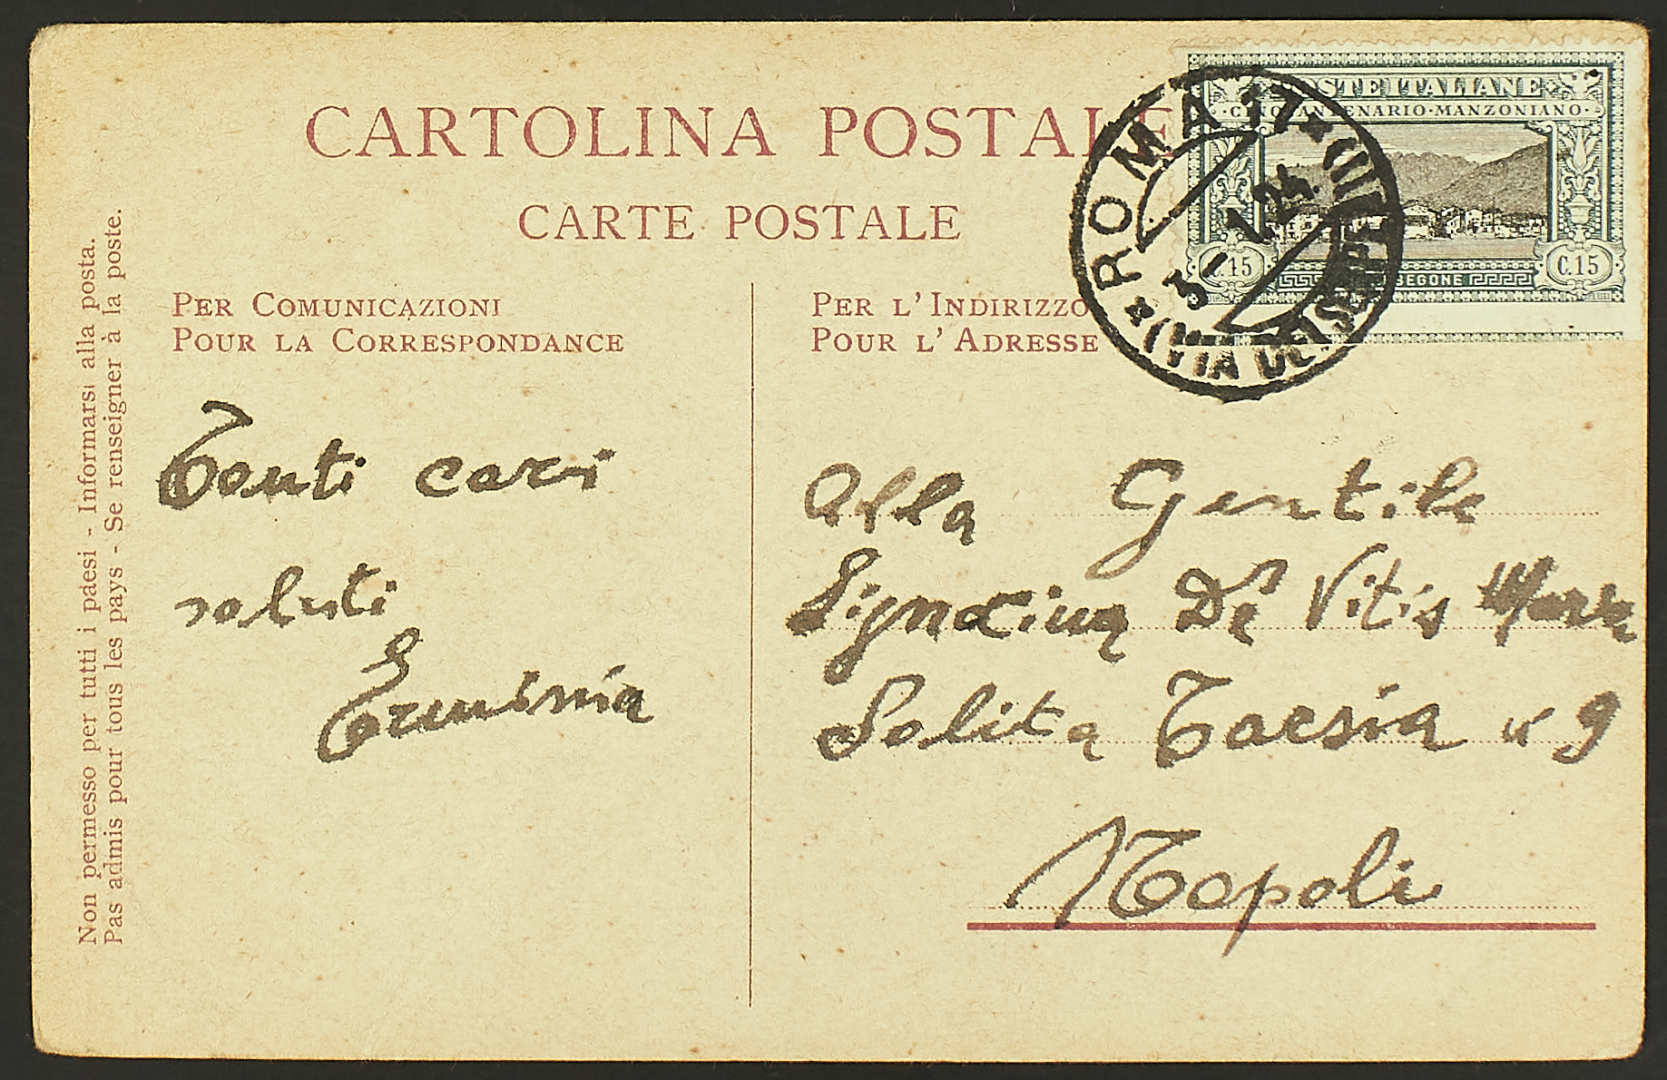 CARTOLINA POSTALE
CARTE POSTALE
PER COMUNICAZIONI
POUR LA CORRESPONDANCE
PER L' INDIRIZZO
POUR L' ADRESSE
Non permesso per tutti i paesi - Informarsi alla posta.
Pas admis pour tous les pays - Se renseigner à la poste.
STE ITALIANE
ENARIO·MANZONIANO·
C.15
SEGONE
C.15
ROMA 17
3-1.24
(VIA DEI
Tanti cari
saluti
Erminia
Alla Gentile
Signorina De Vitis
Salita Tarsia n 9
Napoli